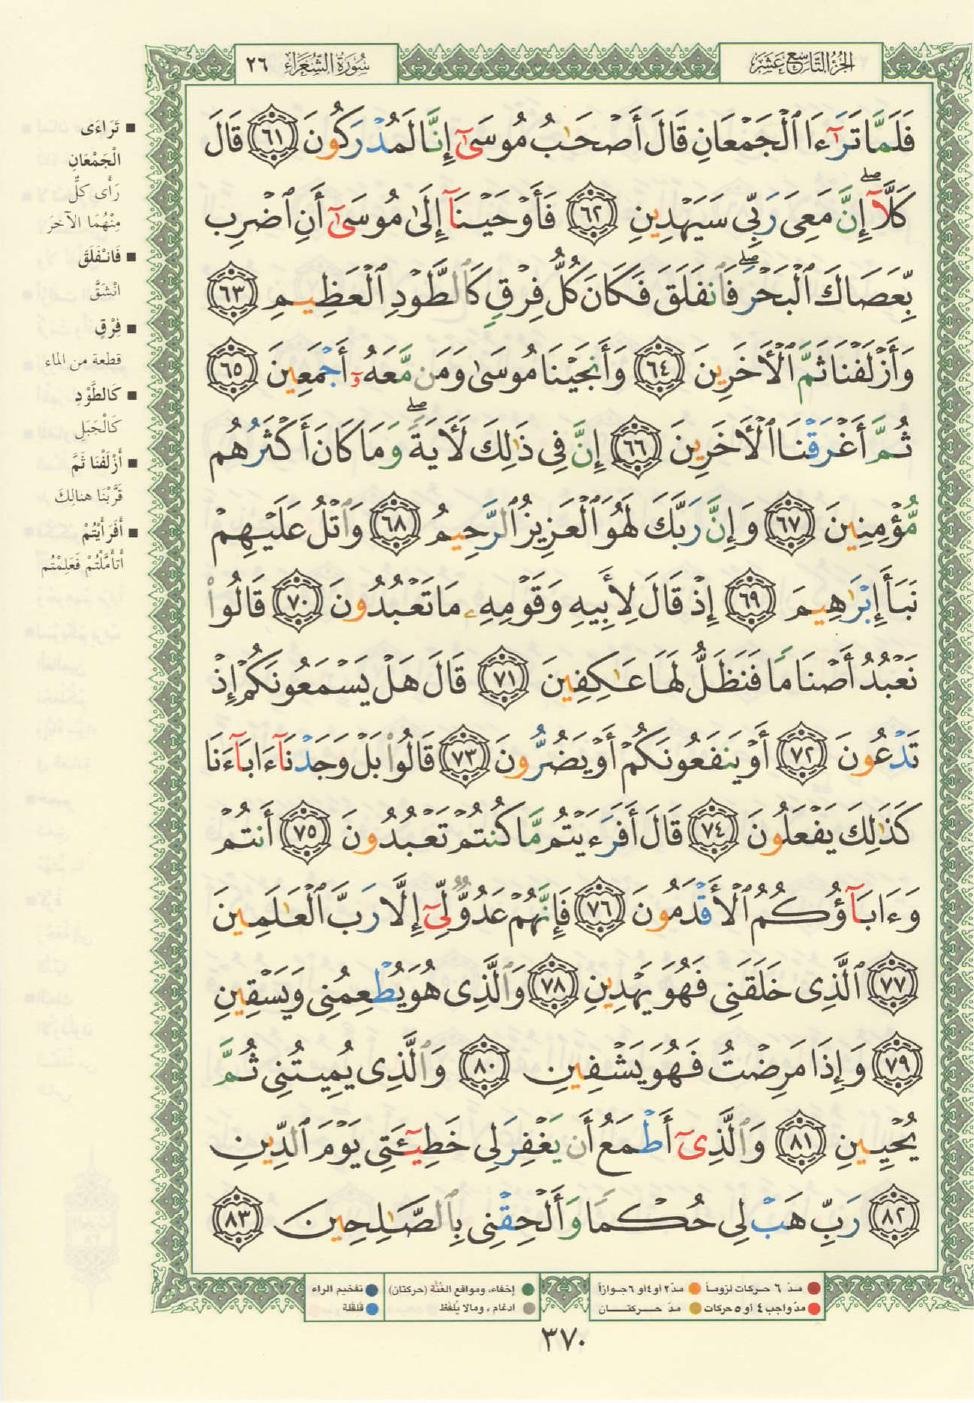 الجزء التاسع عشر
سورة الشعراء ٢٦
فَلَمَّا تَرَٰٓءَا ٱلْجَمْعَانِ قَالَ أَصْحَٰبُ مُوسَىٰٓ إِنَّا لَمُدْرَكُونَ ٦١ قَالَ
كَلَّآ ۖ إِنَّ مَعِىَ رَبِّى سَيَهْدِينِ ٦٢ فَأَوْحَيْنَآ إِلَىٰ مُوسَىٰٓ أَنِ ٱضْرِب
بِّعَصَاكَ ٱلْبَحْرَ ۖ فَٱنفَلَقَ فَكَانَ كُلُّ فِرْقٍ كَٱلطَّوْدِ ٱلْعَظِيمِ ٦٣
وَأَزْلَفْنَا ثَمَّ ٱلْءَاخَرِينَ ٦٤ وَأَنجَيْنَا مُوسَىٰ وَمَن مَّعَهُۥٓ أَجْمَعِينَ ٦٥
ثُمَّ أَغْرَقْنَا ٱلْءَاخَرِينَ ٦٦ إِنَّ فِى ذَٰلِكَ لَءَايَةً ۖ وَمَا كَانَ أَكْثَرُهُم
مُّؤْمِنِينَ ٦٧ وَإِنَّ رَبَّكَ لَهُوَ ٱلْعَزِيزُ ٱلرَّحِيمُ ٦٨ وَٱتْلُ عَلَيْهِمْ
نَبَأَ إِبْرَٰهِيمَ ٦٩ إِذْ قَالَ لِأَبِيهِ وَقَوْمِهِۦ مَا تَعْبُدُونَ ٧٠ قَالُوا۟
نَعْبُدُ أَصْنَامًا فَنَظَلُّ لَهَا عَٰكِفِينَ ٧١ قَالَ هَلْ يَسْمَعُونَكُمْ إِذْ
تَدْعُونَ ٧٢ أَوْ يَنفَعُونَكُمْ أَوْ يَضُرُّونَ ٧٣ قَالُوا۟ بَلْ وَجَدْنَآ ءَابَآءَنَا
كَذَٰلِكَ يَفْعَلُونَ ٧٤ قَالَ أَفَرَءَيْتُم مَّا كُنتُمْ تَعْبُدُونَ ٧٥ أَنتُمْ
وَءَابَآؤُكُمُ ٱلْأَقْدَمُونَ ٧٦ فَإِنَّهُمْ عَدُوٌّ لِّىٓ إِلَّا رَبَّ ٱلْعَٰلَمِينَ
٧٧ ٱلَّذِى خَلَقَنِى فَهُوَ يَهْدِينِ ٧٨ وَٱلَّذِى هُوَ يُطْعِمُنِى وَيَسْقِينِ
٧٩ وَإِذَا مَرِضْتُ فَهُوَ يَشْفِينِ ٨٠ وَٱلَّذِى يُمِيتُنِى ثُمَّ
يُحْيِينِ ٨١ وَٱلَّذِىٓ أَطْمَعُ أَن يَغْفِرَ لِى خَطِيٓـَٔتِى يَوْمَ ٱلدِّينِ
٨٢ رَبِّ هَبْ لِى حُكْمًا وَأَلْحِقْنِى بِٱلصَّٰلِحِينَ ٨٣
■ تَرَاءَى
الْجَمْعَانِ
رَأَى كلٌّ
مِنْهُمَا الآخَرَ
■ فَانْفَلَقَ
انْشَقَّ
■ فِرْقٍ
قطعة من الماء
■ كَالطَّوْدِ
كَالْجَبَلِ
■ أَزْلَفْنَا ثَمَّ
قَرَّبْنَا هنالِكَ
■ أَفَرَأَيْتُمْ
أَتَأَمَّلْتُمْ فَعَلِمْتُم
مدّ ٦ حركات لزوماً مدّ ٢ أو ٤ أو ٦ جوازاً
مدّ واجب ٤ أو ٥ حركات مدّ حركتان
إخفاء، ومواقع الغُنَّة (حركتان) تفخيم الراء
إدغام، وما لا يُلفَظ قلقلة
٣٧٠